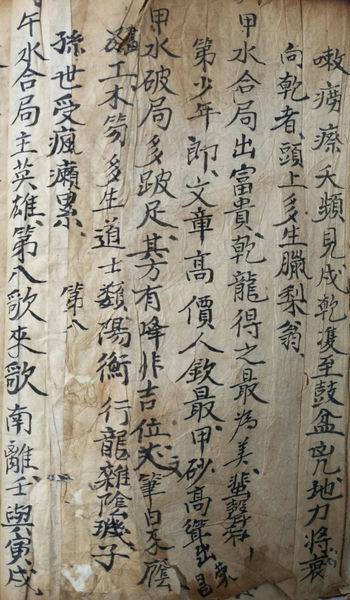 嗽癆瘵夭頻見戌乾雙至鼓盆凶地力將衰
向乾者頭上多生臘梨翁
甲水合局出富貴乾龍得之最為美蜚聲
第少年郎文章高價人欽最甲砂高聳出榮昌
甲水破局多跛足其方有峰非吉位筆白來應
工木笏多生道士類陽衡行龍雜陰璣子
孫世受瘋癩累
第八
午水合局主英雄第八歌來歌南離壬與寅戌